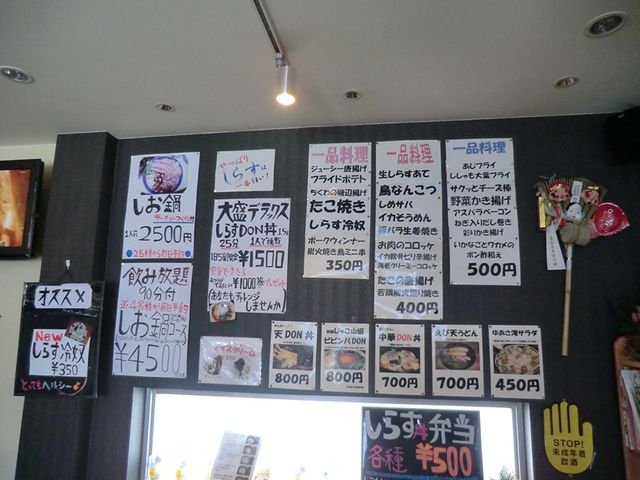 しお鍋
ラーメン・ライス付
1人前 2500円
2名様から前日予約
飲み放題
90分付
※4名様が前日予約
しお鍋コース
¥4500
オススメ
New
しらす冷奴
¥350
とってもヘルシー
やっぱり
しらすは
一番うまい!
大盛デラックス
しらすDON丼
25分
1人で挑戦
¥1500
完食できたら
¥1000券プレゼント
あなたもチャレンジ
しませんか
アイスクリーム
一品料理
ジューシー唐揚げ
フライドポテト
ちくわの磯辺揚げ
たこ焼き
しらす冷奴
ポークウィンナー
炭火焼き鳥ミニ串
350円
一品料理
生しらすあて
鳥なんこつ
しめサバ
イカそうめん
豚バラ生姜焼き
お肉のコロッケ
イカ軟骨ピリ辛揚げ
海老クリーミーコロッケ
たこの唐揚げ
若鶏炭火照り焼き
400円
一品料理
あじフライ
ししゃも大葉フライ
サクッとチーズ棒
野菜かき揚げ
アスパラベーコン
ねぎ入りだし巻き
彩りかき揚げ
いかなごとワカメの
ポン酢和え
500円
天DON丼
800円
じゃこ山椒
ビビンバDON
800円
中華DON丼
700円
えび天うどん
700円
ゆあさ湾サラダ
450円
しらす丼弁当
各種 ¥500
STOP!
未成年者
飲酒